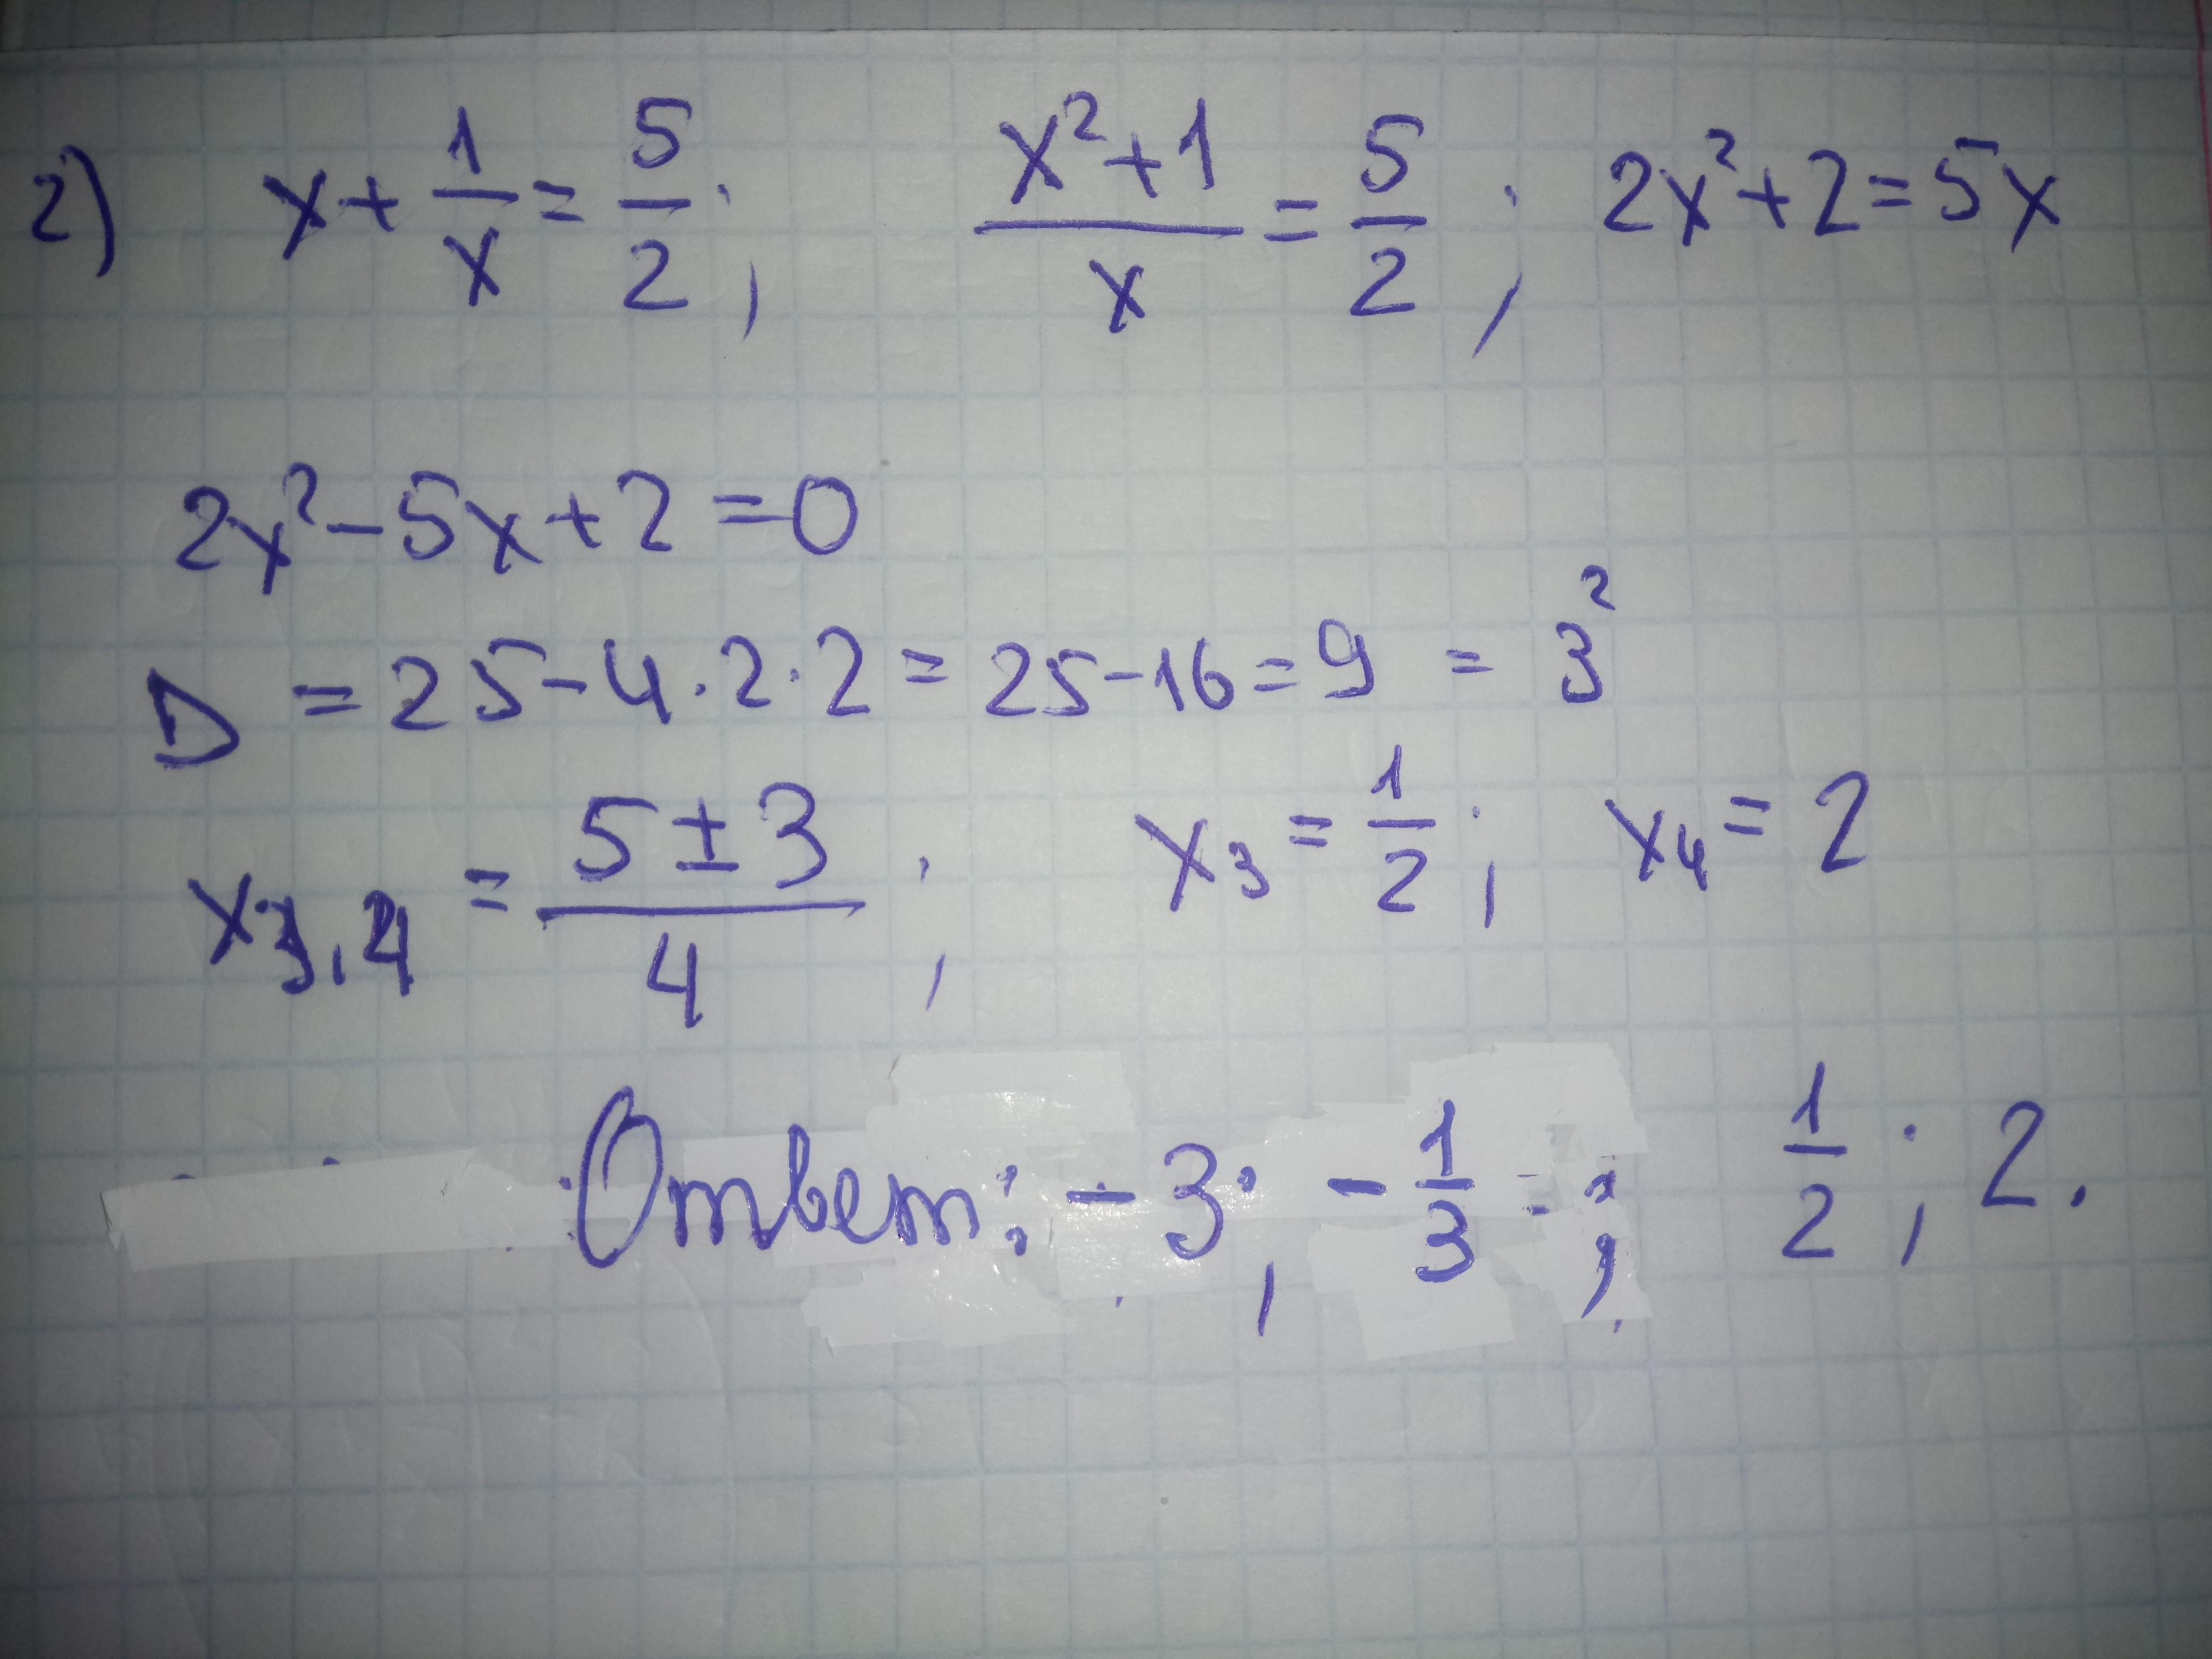 2) x + 1/x = 5/2; (x²+1)/x = 5/2; 2x²+2=5x
2x²-5x+2=0
D = 25-4·2·2 = 25-16=9 = 3²
x₃,₄ = (5±3)/4; x₃ = 1/2; x₄ = 2
Ответ: -3; -1/3; 1/2; 2.